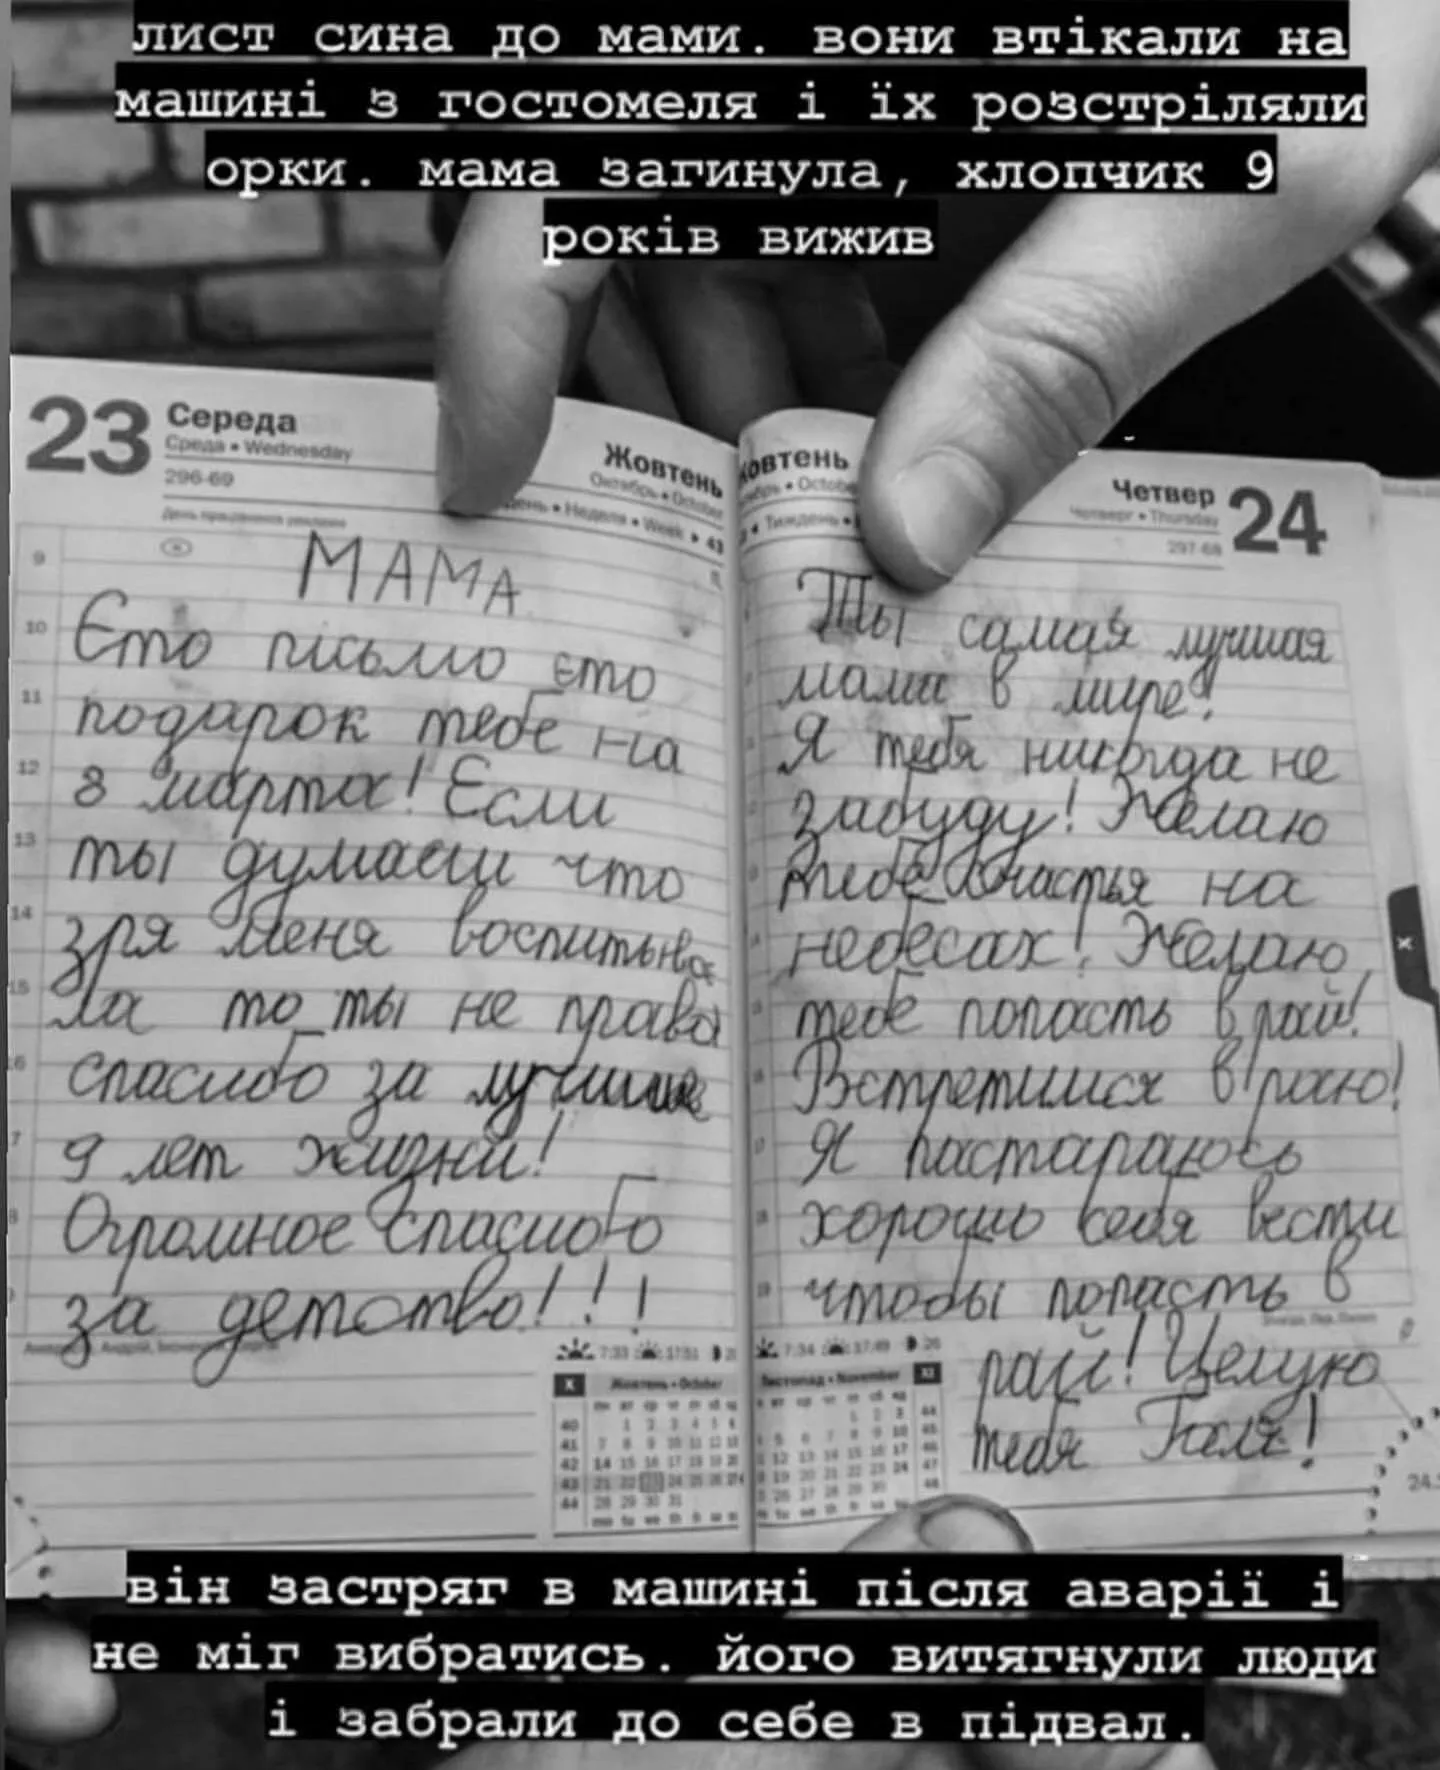 лист сина до мами. вони втікали на
машині з гостомеля і їх розстріляли
орки. мама загинула, хлопчик 9
років вижив
23 Середа
Среда • Wednesday
296-69
Жовтень
Октябрь • October
• Неделя • Week ▸ 43
МАМА
Єто пісьмо єто
подарок тебе на
8 марта! Если
ты думаеш что
зря меня воспитыва
ла то ты не права
спасибо за лучшие
9 лет жизни!
Огромное спасибо
за детство!!!
Жовтень • October
Четвер 24
Четверг • Thursday
297-68
• Тиждень •
Ты самая лучшая
мама в мире!
Я тебя никогда не
забуду! Желаю
тебе счастья на
небесах! Желаю
тебе попасть в рай!
Встретимся в раю!
Я пастараюсь
хорошо себя вести
чтобы попасть в
рай! Целую
тебя Галя!
Листопад • November
він застряг в машині після аварії і
не міг вибратись. його витягнули люди
і забрали до себе в підвал.